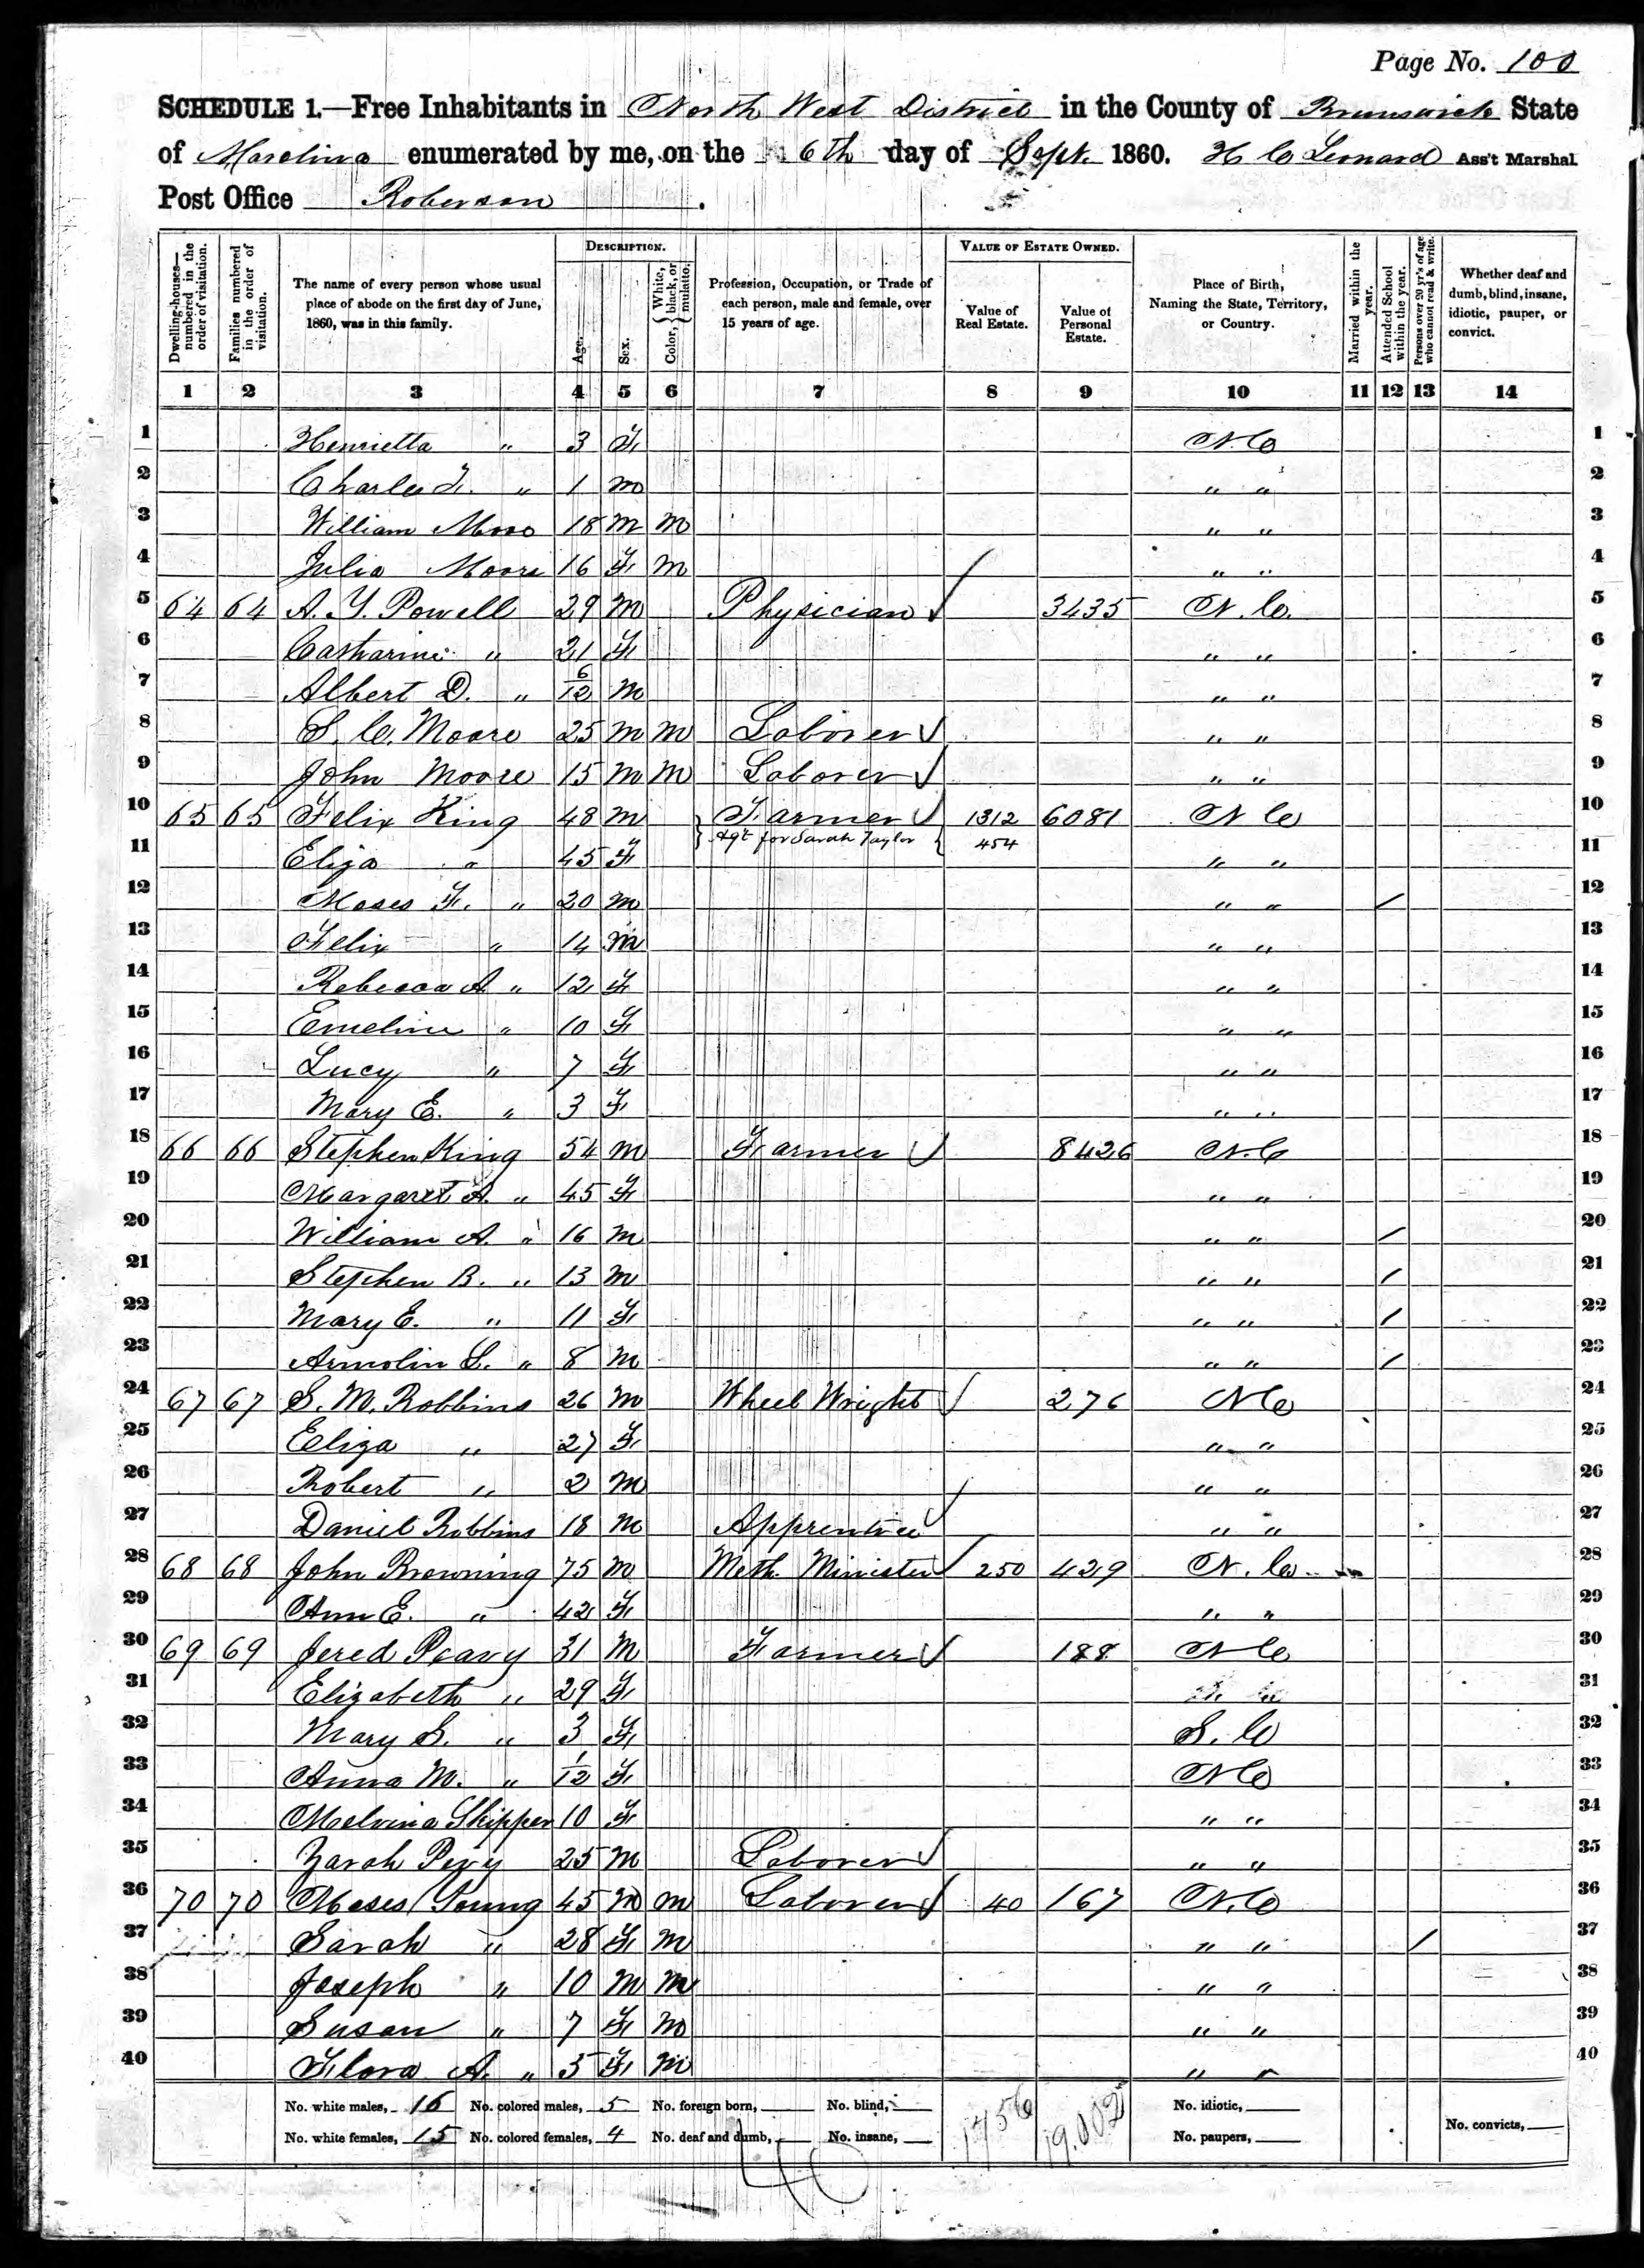 Page No. 100
SCHEDULE 1.—Free Inhabitants in North West District in the County of Brunswick State
of N Carolina enumerated by me, on the 6th day of Sept. 1860. H C Leonard Ass't Marshal.
Post Office Roberson.
Dwelling-houses—numbered in the order of visitation. Families numbered in the order of visitation. The name of every person whose usual place of abode on the first day of June, 1860, was in this family. DESCRIPTION. Age. Sex. Color, {White, black, or mulatto. Profession, Occupation, or Trade of each person, male and female, over 15 years of age. VALUE OF ESTATE OWNED. Value of Real Estate. Value of Personal Estate. Place of Birth, Naming the State, Territory, or Country. Married within the year. Attended School within the year. Persons over 20 yr's of age who cannot read & write. Whether deaf and dumb, blind, insane, idiotic, pauper, or convict.
1 2 3 4 5 6 7 8 9 10 11 12 13 14
1 Henrietta " 3 F N C 1
2 Charles F. " 1 m " " 2
3 William Moo 18 m m " " 3
4 Julia Moore 16 F m " " 4
5 64 64 A. Y. Powell 29 m Physician ✓ 3435 N. C. 5
6 Catharine " 21 F " " 6
7 Albert D. " 6/12 m " " 7
8 S. C. Moore 25 m m Laborer ✓ " " 8
9 John Moore 15 m m Laborer ✓ " " 9
10 65 65 Felix King 48 m Farmer ✓ 1312 6081 N C 10
11 Eliza " 45 F Agt for Sarah Taylor 454 " " 11
12 Moses F. " 20 m " " / 12
13 Felix " 14 m " " 13
14 Rebecca A " 12 F " " 14
15 Emeline " 10 F " " 15
16 Lucy " 7 F " " 16
17 Mary E. " 3 F " " 17
18 66 66 Stephen King 54 m Farmer ✓ 8426 N. C 18
19 Margaret A. " 45 F " " 19
20 William A. " 16 m " " / 20
21 Stephen B. " 13 m " " / 21
22 Mary E. " 11 F " " / 22
23 Armolin L. " 8 m " " / 23
24 67 67 S. M. Robbins 26 m Wheel Wright ✓ 276 N C 24
25 Eliza " 27 F " " 25
26 Robert " 2 m " " 26
27 Daniel Robbins 18 m Apprentice ✓ " " 27
28 68 68 John Browning 75 m Meth. Minister ✓ 250 429 N. C. 28
29 Ann E. " 42 F " " 29
30 69 69 Jered Peavy 31 m Farmer ✓ 188 N C 30
31 Elizabeth " 29 F 31
32 Mary S. " 3 F S. C 32
33 Anna M. " 1/12 F N C 33
34 Melvina Skipper 10 F " " 34
35 Zarah Pevy 25 m Laborer ✓ " " 35
36 70 70 Moses Young 45 m m Laborer ✓ 40 167 N. C 36
37 Sarah " 28 F m " " / 37
38 Joseph " 10 m m " " 38
39 Susan " 7 F m " " 39
40 Flora A. " 5 F m " " 40
No. white males, 16 No. colored males, 5 No. foreign born, No. blind, 19.002 No. idiotic,
No. white females, 15 No. colored females, 4 No. deaf and dumb, No. insane, No. paupers, No. convicts,
40